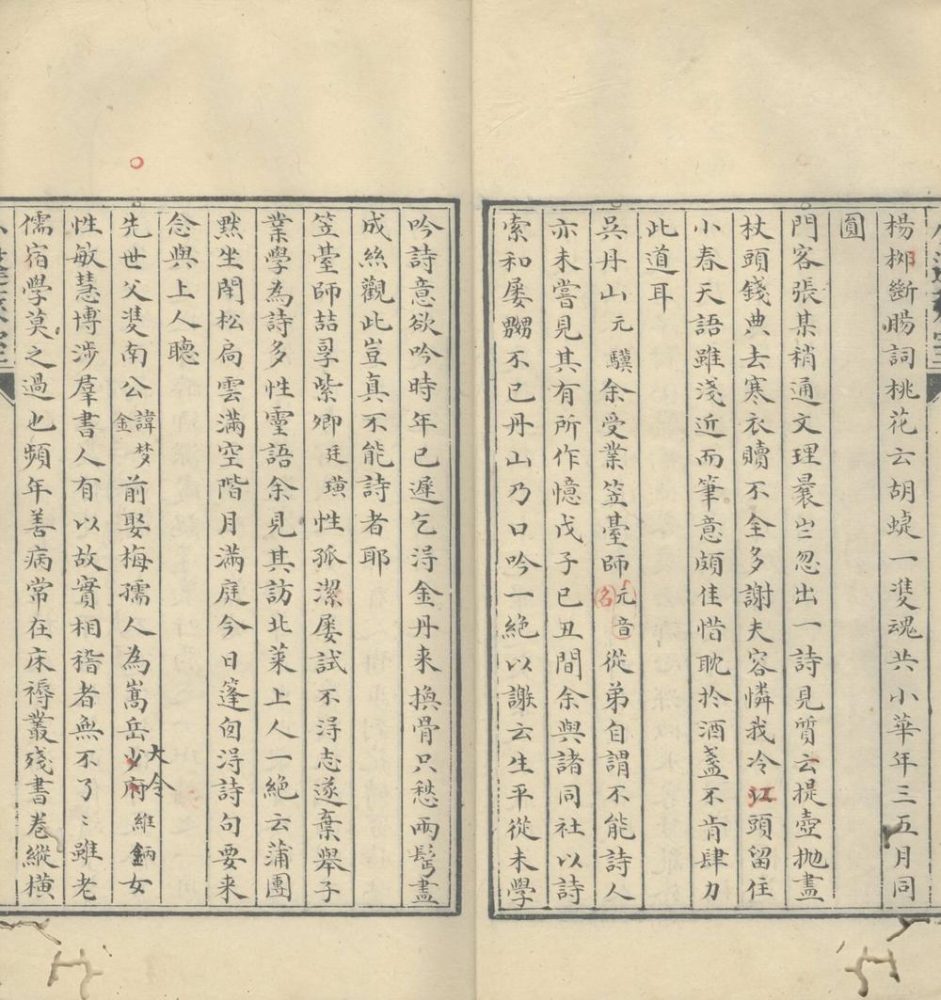 楊桺斷腸詞桃花云胡蜨一䨇魂共小華年三五月同
圓
門客張某稍通文理曩嵗忽出一詩見質云提壺抛盡
杖頭錢典去寒衣贖不全多謝夫容憐我冷江頭留住
小春天語雖淺近而筆意頗佳惜耽於酒盞不肯肆力
此道耳
吳丹山元驥余受業笠臺師元音名從弟自謂不能詩人
亦未嘗見其有所作憶戊子己丑間余與諸同社以詩
索和屢嬲不已丹山乃口吟一絶以謝云生平從未學
吟詩意欲吟時年已遲乞淂金丹来換骨只愁兩鬢盡
成絲觀此豈真不能詩者耶
笠臺師喆昆紫卿廷璜性孤潔屢試不淂志遂棄舉子
業學為詩多性靈語余見其訪北萊上人一絶云蒲團
黙坐閉松扃雲滿空階月滿庭今日篷囱淂詩句要来
念與上人聽
先世父䨇南公諱梦金前娶梅孺人為嵩岳少府大令維鈵女
性敏慧博涉羣書人有以故實相稽者無不了〻雖老
儒宿學莫之過也頻年善病常在床褥叢殘書卷縱横